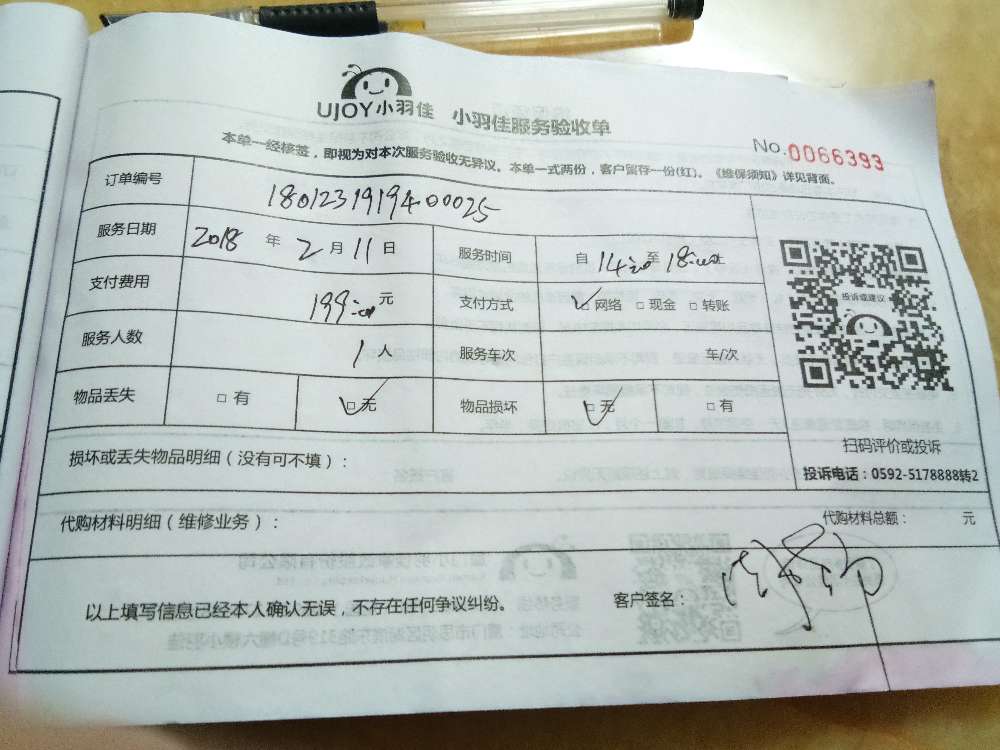 UJOY小羽佳 小羽佳服务验收单
No.0066393
本单一经核签，即视为对本次服务验收无异议。本单一式两份，客户留存一份(红)。《维保须知》详见背面。
订单编号 1801231919400025
服务日期 2018 年 2 月 11 日 服务时间 自 14:00 至 18:00止
支付费用 199:00 元 支付方式 ☑网络 □现金 □转账
服务人数 1 人 服务车次 车/次
物品丢失 □有 ☑无 物品损坏 ☑无 □有
投诉或建议
扫码评价或投诉
投诉电话：0592-5178888转2
损坏或丢失物品明细（没有可不填）：
代购材料明细（维修业务）： 代购材料总额： 元
以上填写信息已经本人确认无误，不存在任何争议纠纷。 客户签名：